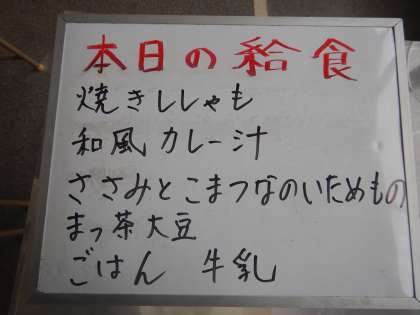 本日の給食
焼きししゃも
和風カレー汁
ささみとこまつなのいためもの
まっ茶大豆
ごはん 牛乳